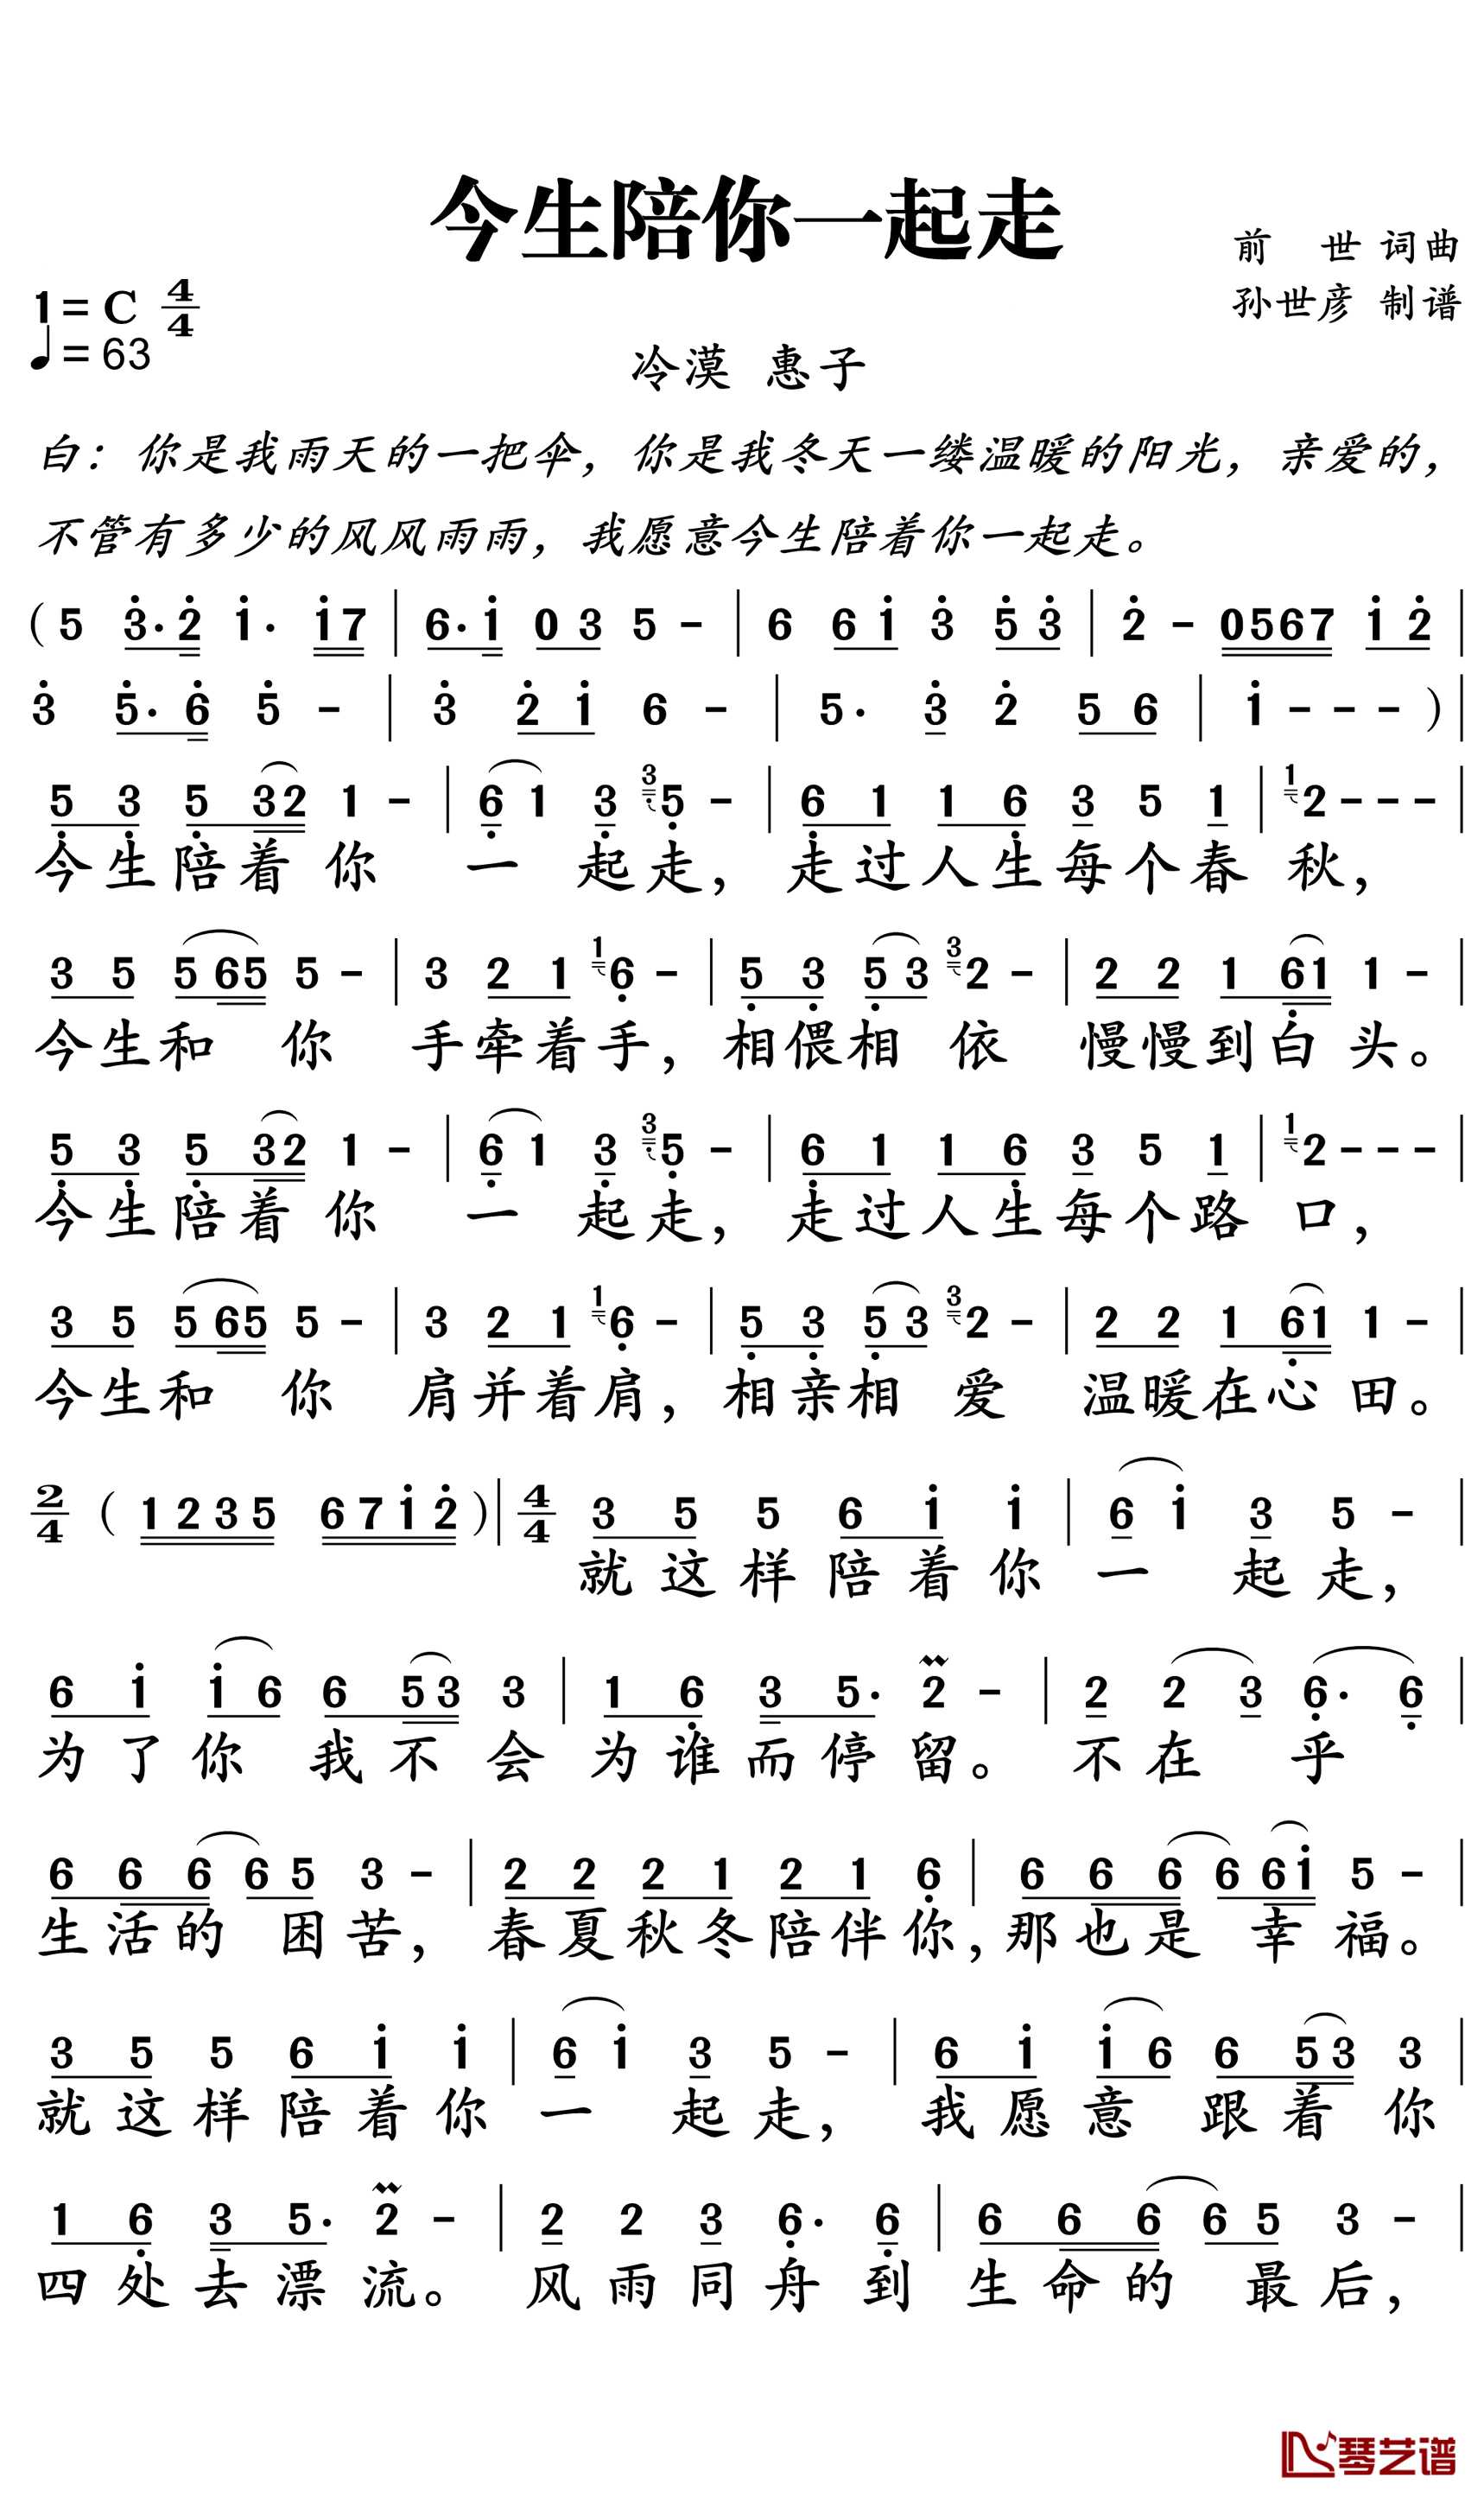 今生陪你一起走
前 世 词曲
孙世彦 制谱
1=C 4/4
♩=63
冷漠 惠子
白：你是我雨天的一把伞，你是我冬天一缕温暖的阳光，亲爱的，
不管有多少的风风雨雨，我愿意今生陪着你一起走。
(5 3̇·2̇ 1̇· 1̇7 | 6·1̇ 03 5 - | 6 61̇ 3̇ 5̇3̇ | 2̇ - 0567 1̇2̇ |
3̇ 5̇·6̇ 5̇ - | 3̇ 2̇1̇ 6 - | 5· 3̇ 2̇ 56 | 1̇ - - - ) |
5̣ 3̣ 5̣ 32 1 - | 6̣ 1 3̣ 3 5̣ - | 6̣ 1 1 6̣ 3 5 1 | 1 2 - - - |
今生陪着你 一 起走，走过人生每个春 秋，
3 5 565 5 - | 3 2 1 1 6̣ - | 5̣ 3̣ 5̣ 3 3 2 - | 2 2 1 6̣1 1 - |
今生和 你 手牵着手，相偎相 依 慢慢到白 头。
5̣ 3̣ 5̣ 32 1 - | 6̣ 1 3̣ 3 5̣ - | 6̣ 1 1 6̣ 3 5 1 | 1 2 - - - |
今生陪着你 一 起走，走过人生每个路 口，
3 5 565 5 - | 3 2 1 1 6̣ - | 5̣ 3̣ 5̣ 3 3 2 - | 2 2 1 6̣1 1 - |
今生和 你 肩并着肩，相亲相 爱 温暖在心 田。
2/4 (1235 671̇2̇) | 4/4 3 5 5 6 1̇ 1̇ | 6 1̇ 3 5 - |
就这样陪着你 一 起走，
6 1̇ 1̇ 6 6 53 3 | 1 6̣ 3 5· 2 - | 2 2 3 6̣· 6̣ |
为了你 我不 会 为谁而停留。 不在 乎
6 6 6 6 5 3 - | 2 2 2 1 2 1 6̣ | 6 6 6 6 61̇ 5 - |
生活的 困苦，春夏秋冬陪伴你，那也是 幸福。
3 5 5 6 1̇ 1̇ | 6 1̇ 3 5 - | 6 1̇ 1̇ 6 6 53 3 |
就这样陪着你 一 起走， 我愿意 跟着 你
1 6̣ 3 5· 2 - | 2 2 3 6̣· 6̣ | 6 6 6 6 5 3 - |
四处去漂流。 风雨同舟到 生命的 最后，
琴艺谱